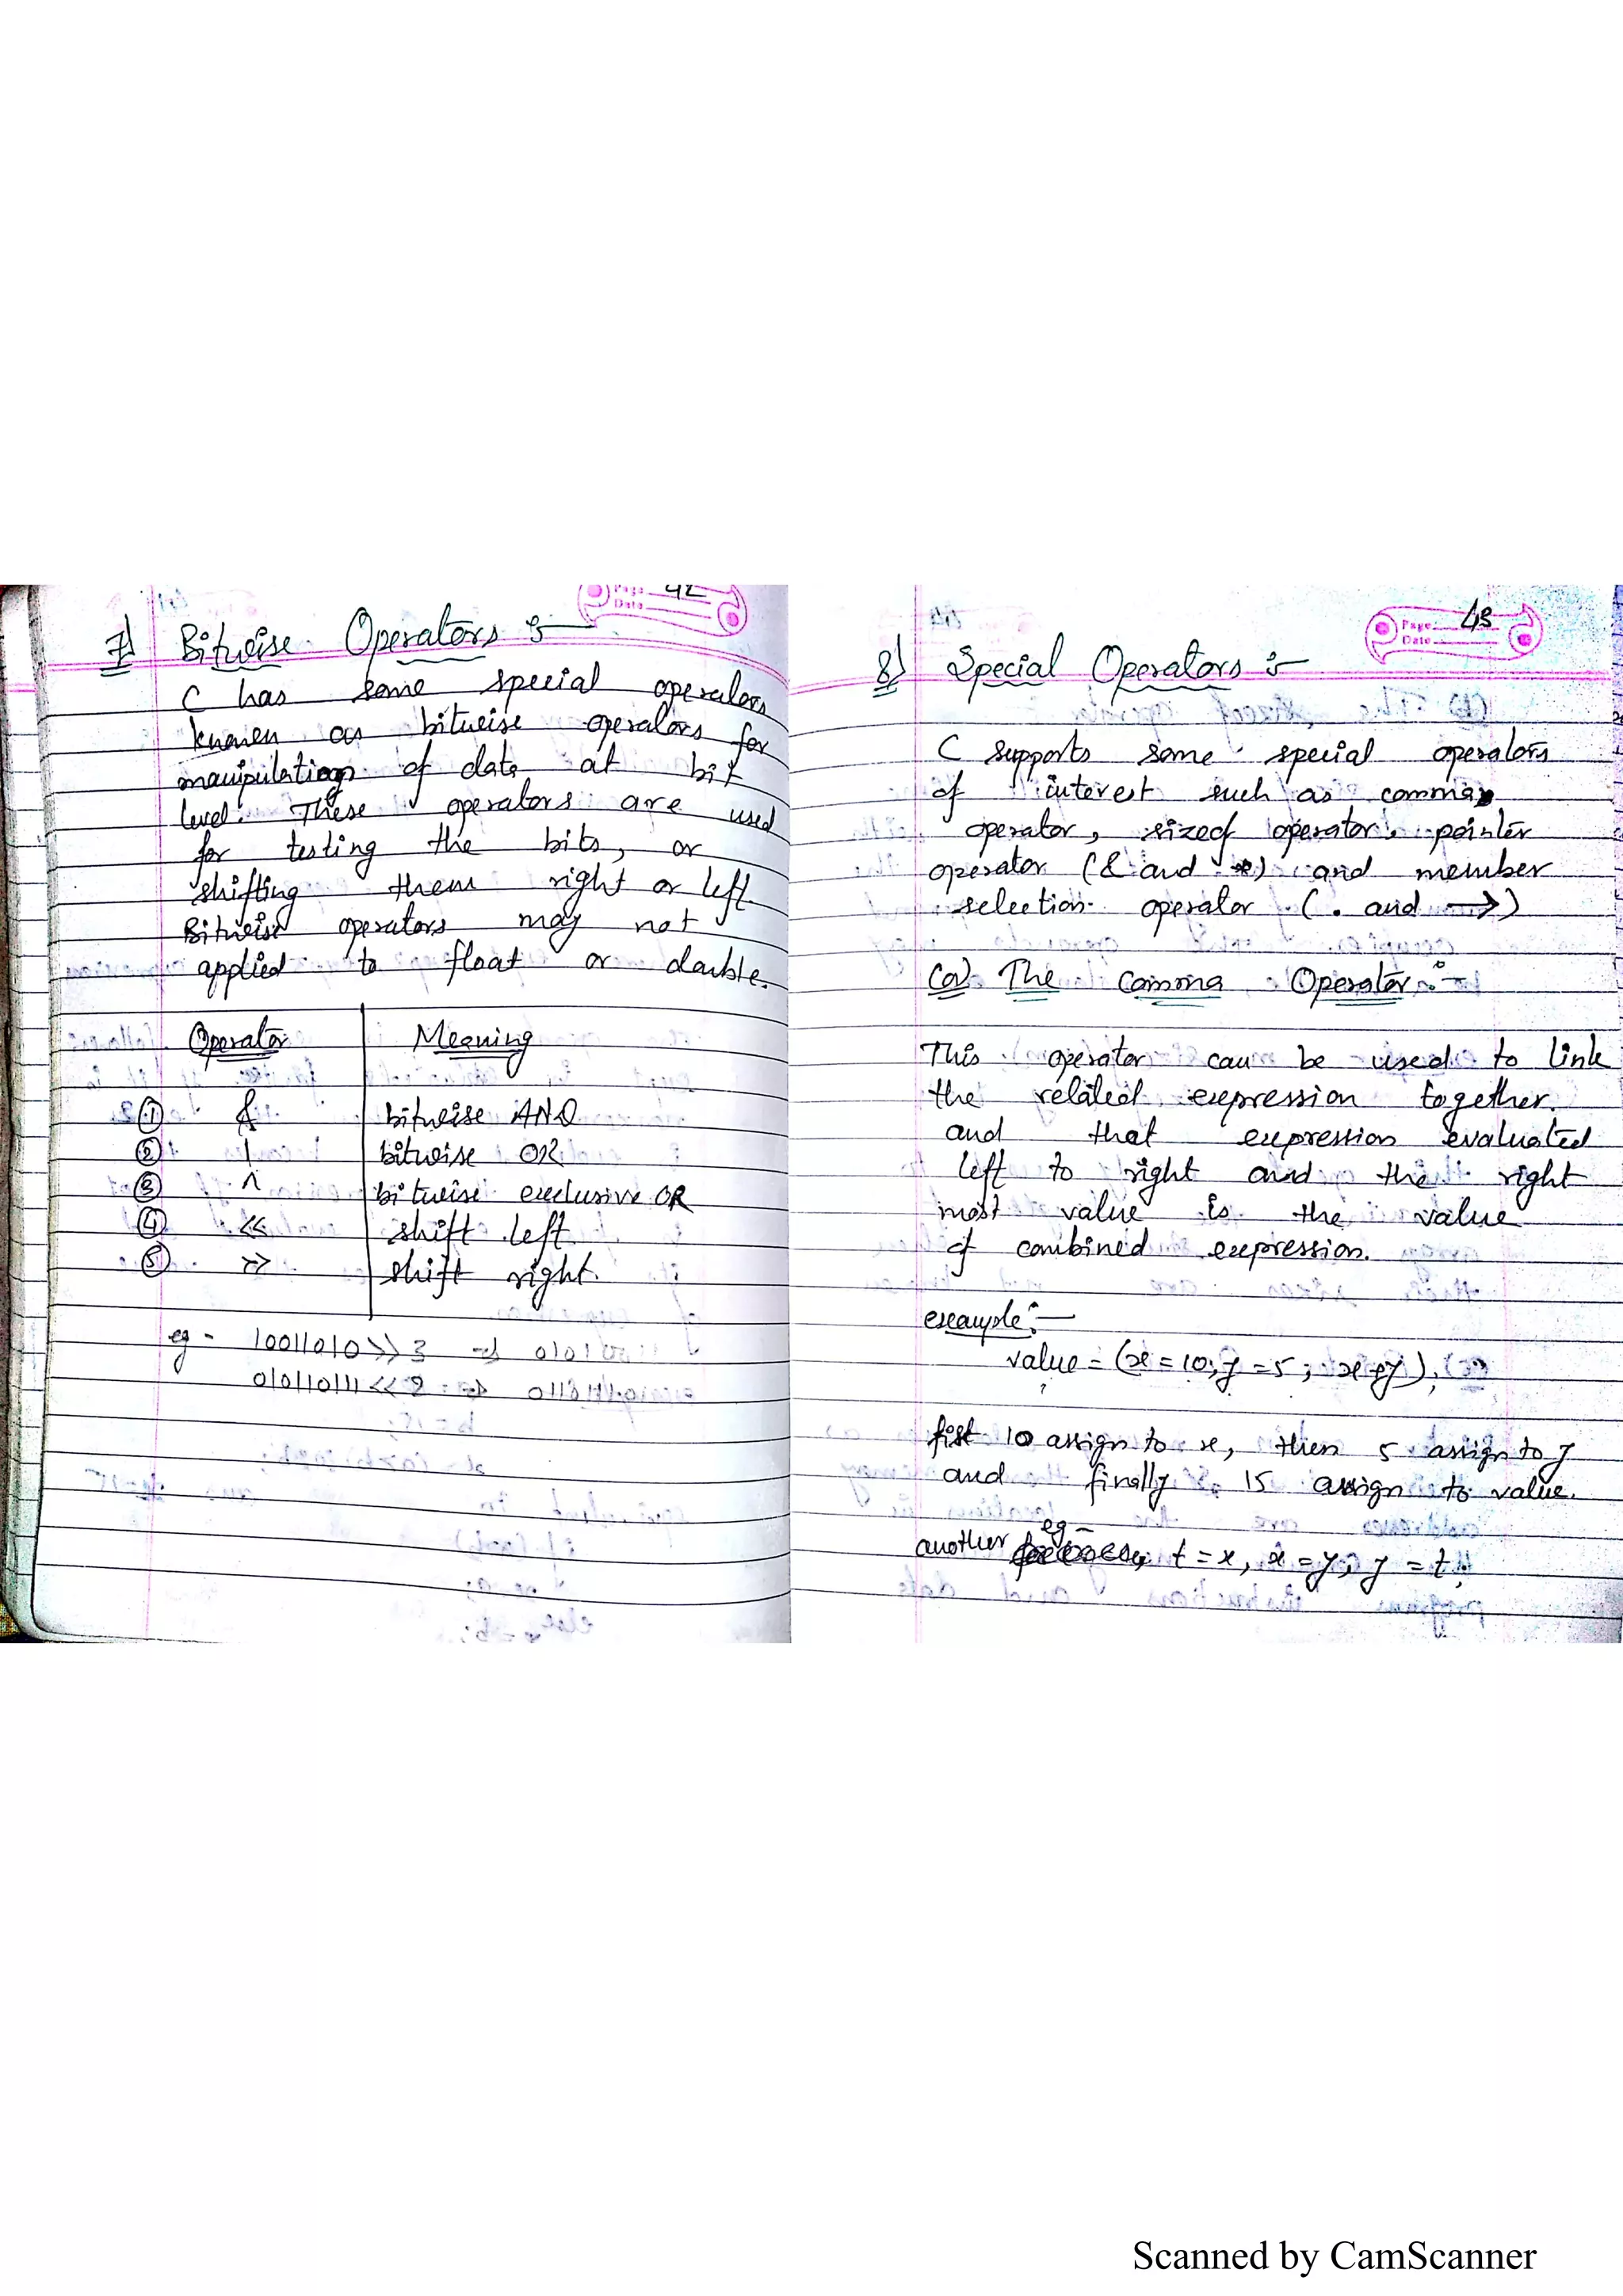 Page 42
Date
7) Bitwise Operators :-
C has some special operators
known as bitwise operators for
manipulation of data at bit
level. These operators are used
for testing the bits, or
shifting them right or left.
Bitwise operators may not
applied to float or double.
Operator Meaning
① & bitwise AND
② | bitwise OR
③ ^ bitwise exclusive OR
④ << shift left
⑤ >> shift right.
eg - 10011010 >> 3 ⇒
01011011 <<
Page 43
Date
8) Special Operators :-
C supports some special operators
of interest such as comma
operator, sizeof operator, pointer
operator (& and *) and member
selection operator (. and →)
(a) The Comma Operator :-
This operator can be used to link
the related expression together.
and that expression evaluated
left to right and the right
most value is the value
of combined expression.
example :-
value = (x = 10; y = 5; x+y);
fist 10 assign to x, then 5 assign to y
and finally 15 assign to value.
another eg - t = x, x = y, y = t;
Scanned by CamScanner